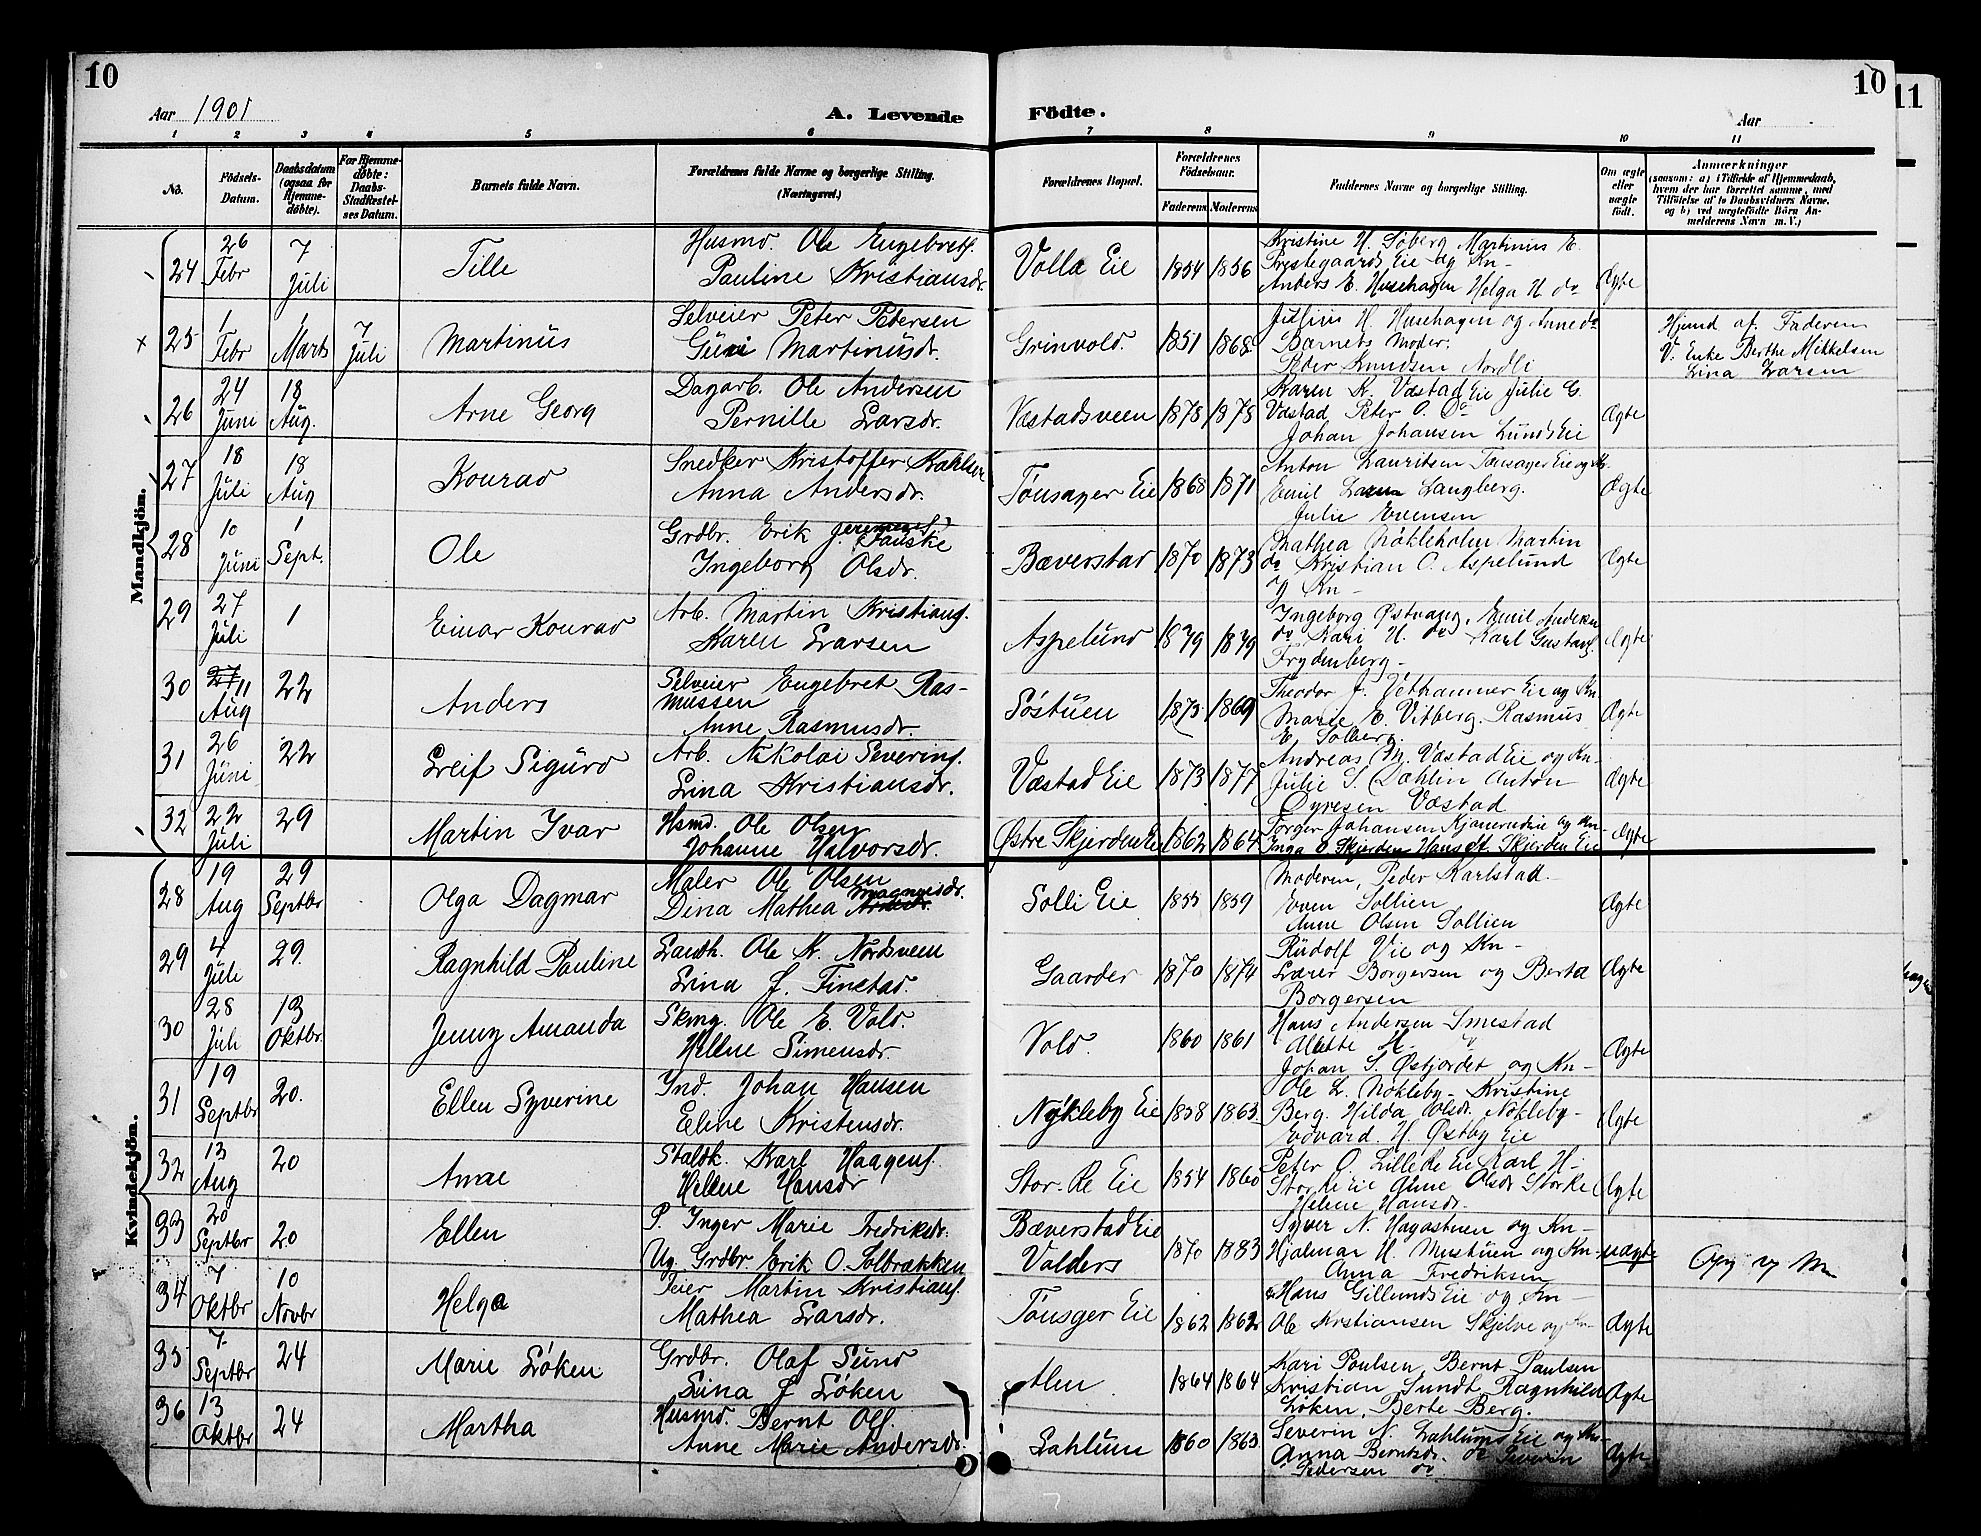 10
10
11
Aar 1901
A. Levende
Födte.
Aar
1 2 3 4 5 6 7 8 9 10 11
No.
Födsels-Datum.
Daabsdatum (ogsaa for Hjemme-døbte).
For Hjemme-døbte: Daabs-Stadfæstel-ses Datum.
Barnets fulde Navn.
Forældrenes fulde Navne og borgerlige Stilling.
(Næringsvei.)
Forældrenes Bopæl.
Forældrenes Födselsaar.
Faderens Moderens
Faddernes Navne og borgerlige Stilling.
Om ægte eller uægte født.
Anmærkninger
(saasom: a) i Tilfælde af Hjemmedaab, hvem der har forrettet samme, med Tilföielse af to Daabsvidners Navne, og b) ved uægtefödte Börn An-melderens Navn m.V.)
Mandkjön.
24 26 Febr 7 Juli Tille
Husmd. Ole Engebretf.
Pauline Kristiansdr.
Volla Eie 1854 1856
Kristine H. Soberg Martinus E.
Prestegaards Eie og Kn-
Anders E. Husehagen Helga H. do
Ægte
25 1 Febr 1 Marts 7 Juli Martinus
Selveier Peter Petersen
Guri Martinusdr.
Grinvold. 1851 1868
Julius H. Husehagen og Anne do
Barnets Moder.
Peder Knudsen Nordli
Hjemd af Faderen
V. Enke Berthe Mikkelsen
Lina Larsen
26 24 Juni 18 Aug. Arne Georg
Dagarb. Ole Andersen
Pernille Larsdr.
Væstadsveen 1878 1878
Karen K. Væstad Eie Julie G.
Væstad Peter O. Do
Johan Johansen Lunds Eie
Ægte
27 18 Juli 18 Aug Konrad
Snedker Kristoffer Kahlsen
Anna Andersdr.
Tonsager Eie 1868 1871
Anton Lauritsen Tonsager Eie og Kn.
Emil Langberg.
Julie Evensen
Ægte
28 10 Juni 1 Sept. Ole
Grdbr. Erik J. Fauske
Ingeborg Olsdr.
Bæverstad 1870 1873
Mathea Nökleholm Martin
do Kristian O. Aspelund
og Kn-
Ægte
29 27 Juli 1 Einar Konrad
Arb. Martin Kristiansf.
Karen Larsen
Aspelund 1879 1879
Ingeborg Østvang, Emil Andersen
do Kari H. do Karl Gustavf.
Frydenberg-
Ægte
30 11 Aug 22 Anders
Selveier Engebret Ras-
mussen
Anne Rasmusdr.
Søstuen 1873 1869
Theodor J. Vethammer Eie og Kn.
Marie E. Vitberg. Rasmus
E. Solberg.
Ægte
31 26 Juni 22 Leif Sigurd
Arb. Nikolai Severinf.
Lina Kristiansdr.
Væstad Eie 1873 1877
Andreas M. Væstad Eie og Kn-
Julie S. Dæhlin Anton
Væstad
Ægte
32 22 Juli 29 Martin Ivar
Hsmd. Ole Olsen
Johanne Halvorsdr.
Østre Skjerden Eie 1862 1864
Torger Johansen og Kn-
Inga O Skjerden Hans Skjerden Eie
Ægte
Kvindekjön.
28 19 Aug 29 Septbr Olga Dagmar
Maler Ole Olsen
Dina Mathea Magnusdr.
Solli Eie 1855 1859
Moderen, Peder Karlstad.
Even Sollien
Anne Olsen Sollien
Ægte
29 4 Juli 29. Ragnhild Pauline
Landh. Ole N. Nordsveen
Lina J. Finstad.
Gaarder 1870 1874
Rudolf Vie og Kn-
Lærer Borgersen og Berta
Borgersen
Ægte
30 28 Juli 13 Oktbr. Jenny Amanda
Skmg. Ole E. Vold.
Hellene Simensdr.
Vold. 1860 1861
Hans Andersen Smestad
Alette H. "
Johan S. Østjordet og Kn-
Ægte
31 19 Septbr 20. Ellen Syverine
Ind. Johan Hansen
Eline Kristensdr.
Nykleby Eie 1858 1863
Ole L. Nökleby. Kristine
Berg. Hilda Olsdr. Nökleby-
Edvard. H. Østby Eie
Ægte
32 13 Aug 20 Anne
Staldk. Karl Haagenf.
Hellene Hansdr
Stor-Re Eie 1854 1860
Peter O. Lille Re Eie Karl H-
Stor Re Eie Olsdr Store
Helene Hansdr.
Ægte
33 20 Septbr 20 Ellen
P. Inger Marie Fredriksdr.
Ug. Grdbr. Erik O. Solbrækken
Bæverstad Eie
Valders 1870 1883
Syver N. Hagastuen og Kn-
Hjalmar H. Mustuen og Kn-
Anna Fredriksen
uægte
34 7 Oktbr 10 Novbr Helga
Leier Martin Kristiansf.
Mathea Larsdr.
Tonsger Eie 1862 1862
Hans Gillunds Eie og Kn-
Ole Kristiansen Skjelve og Kn-
Ægte
35 7 Septbr 24 Marie Løken
Grdbr. Olaf Sund
Lina J Løken
Alm 1864 1864
Kari Poulsen, Bernt Paulsen
Kristian Sundt Ragnhild
Løken, Berte Berg.
Ægte
36 13 Oktbr 24 Martha
Husmd. Bernt Olf.
Anne Marie Andersdr.
Lahlum 1860 1863
Severin N. Lahlums Eie og Kn-
Anna Berntsdr. do Severin
Pedersen do
Ægte